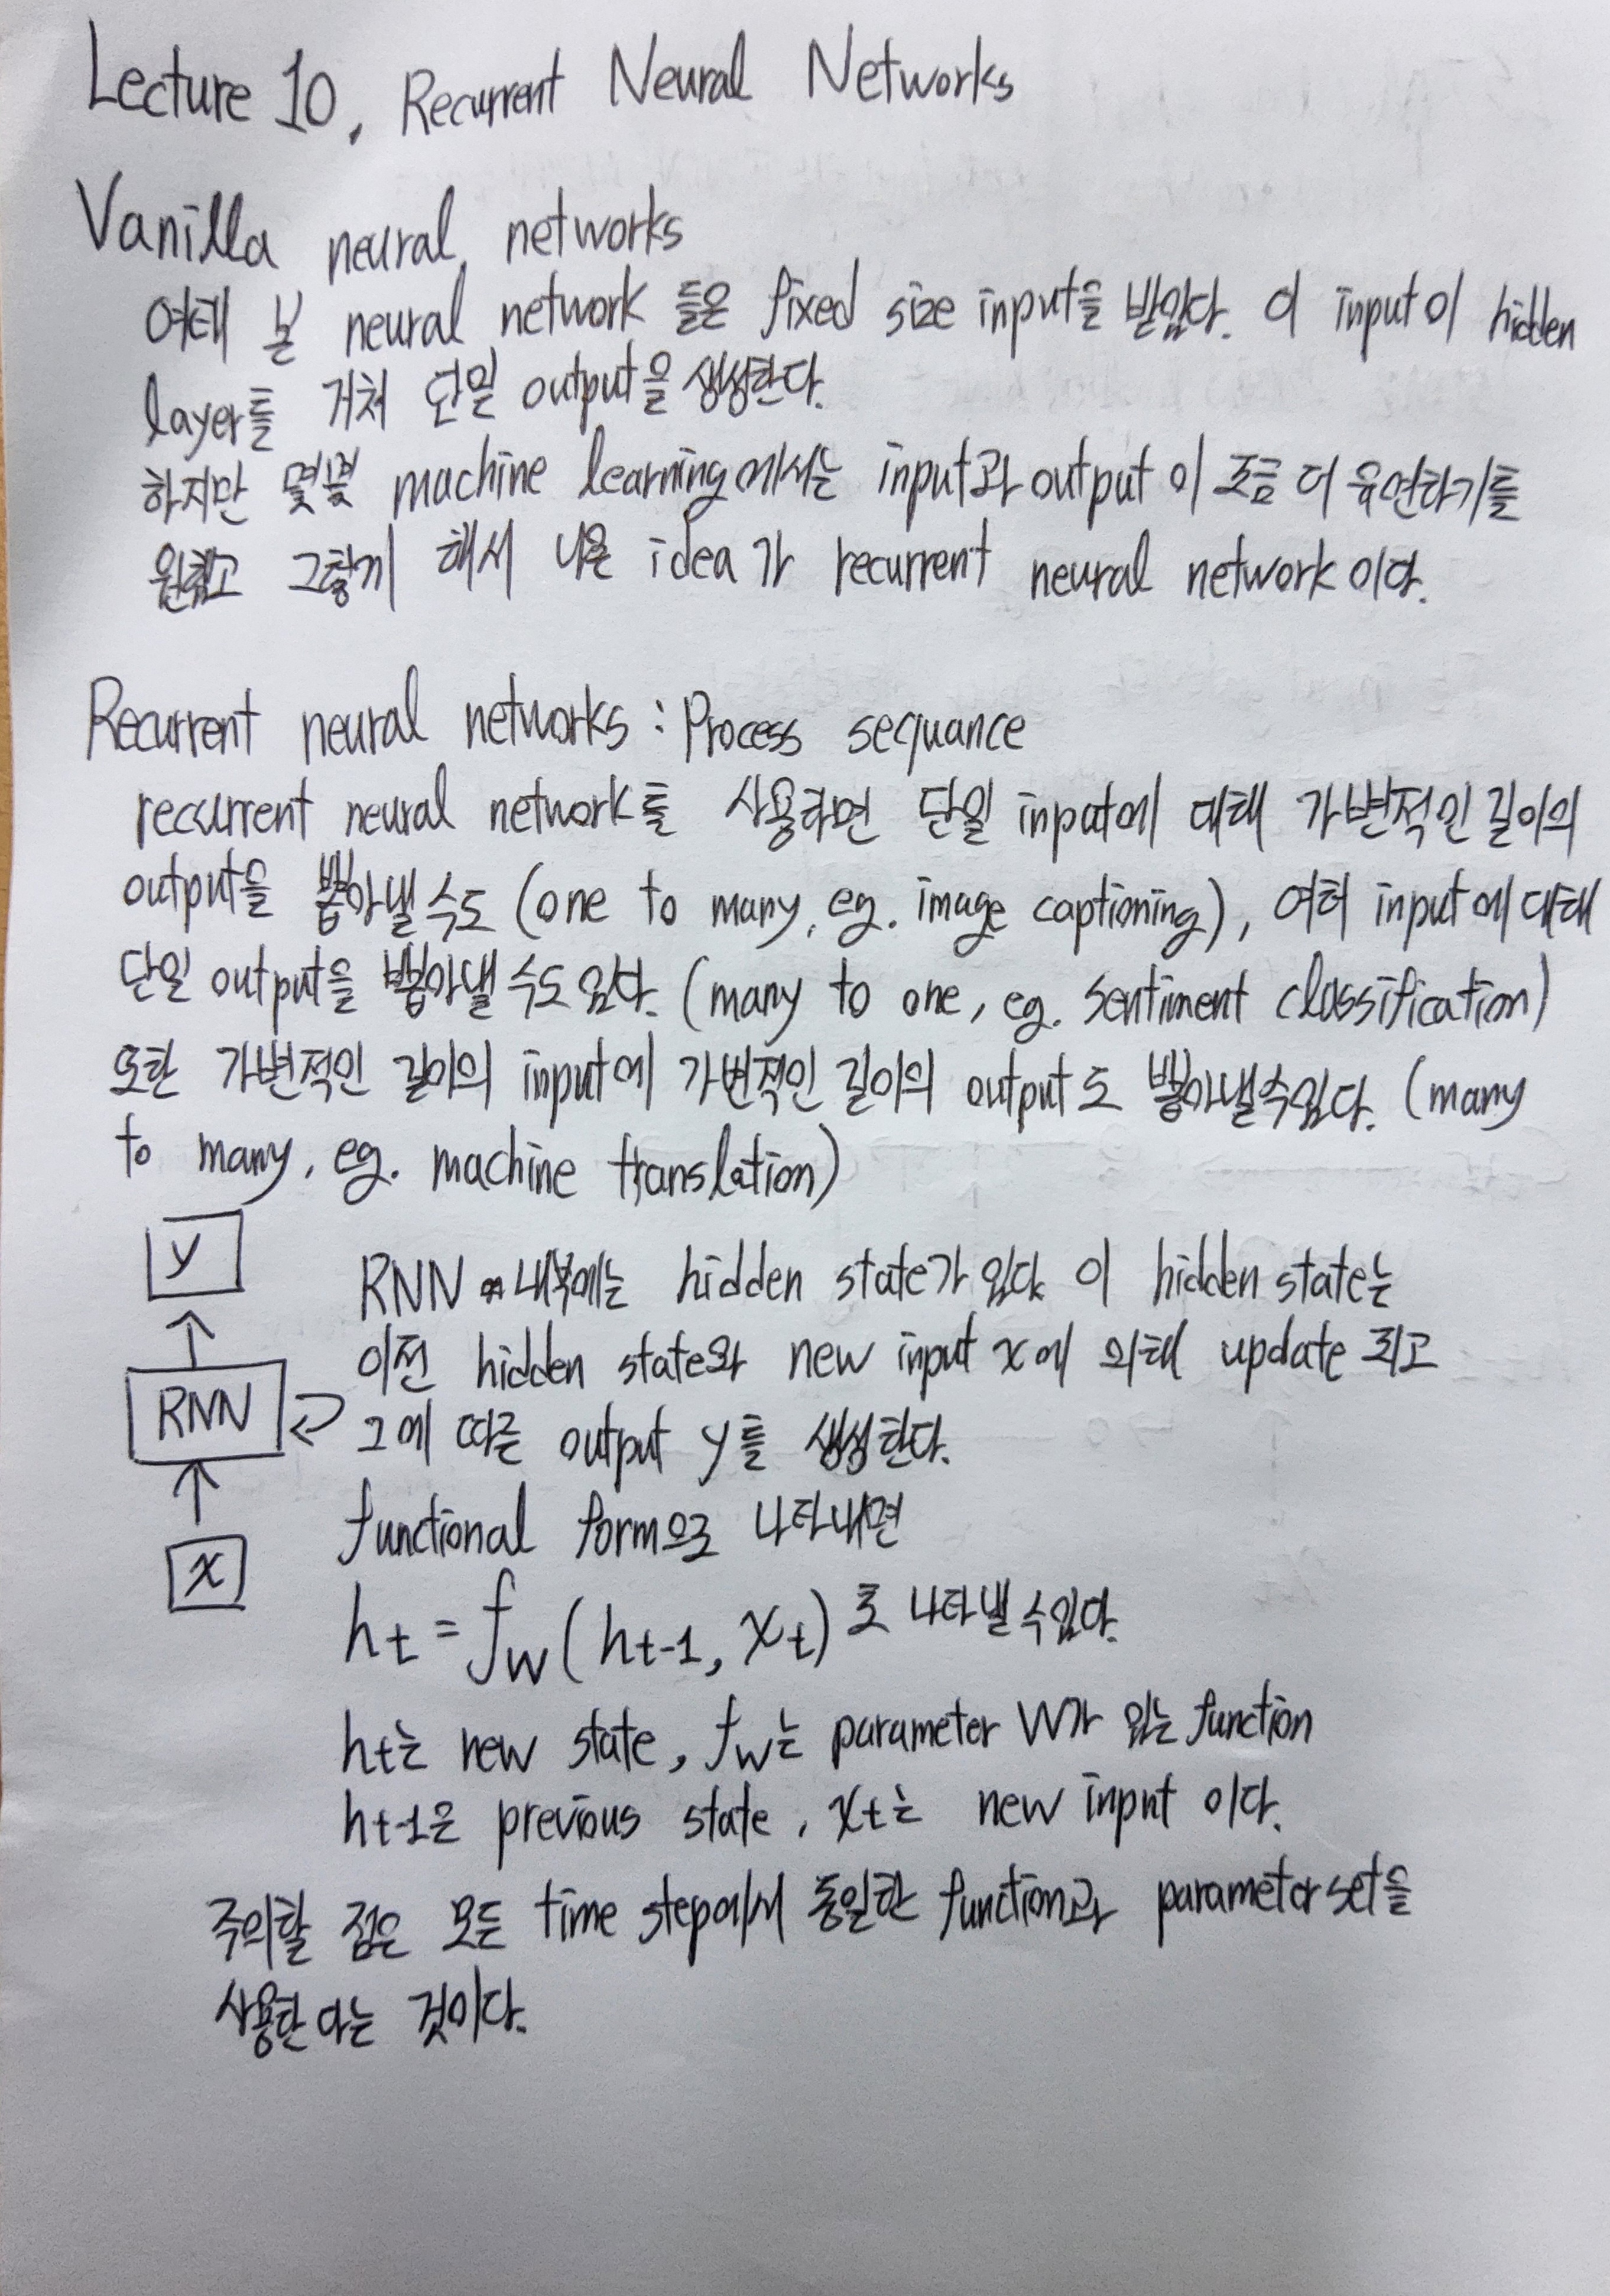 Lecture 10, Recurrent Neural Networks
Vanilla neural networks
여태 본 neural network 들은 fixed size input을 받았다. 이 input이 hidden
layer를 거쳐 단일 output을 생성한다.
하지만 몇몇 machine learning에서는 input과 output이 조금 더 유연하기를
원했고 그렇게 해서 나온 idea가 recurrent neural network이다.
Recurrent neural networks : Process sequance
recurrent neural network를 사용하면 단일 input에 대해 가변적인 길이의
output을 뽑아낼 수도 (one to many, eg. image captioning), 여러 input에 대해
단일 output을 뽑아낼 수도 있다. (many to one, eg. sentiment classification)
또한 가변적인 길이의 input에 가변적인 길이의 output도 뽑아낼 수 있다. (many
to many, eg. machine translation)
y
RNN
x
RNN 내부에는 hidden state가 있다 이 hidden state는
이전 hidden state와 new input x에 의해 update 되고
그에 따른 output y를 생성한다.
functional form으로 나타내면
h_t = f_w(h_t-1, x_t)로 나타낼 수 있다.
h_t는 new state, f_w는 parameter W가 있는 function
h_t-1은 previous state, x_t는 new input 이다.
주의할 점은 모든 time step에서 동일한 function과 parameter set을
사용한다는 것이다.